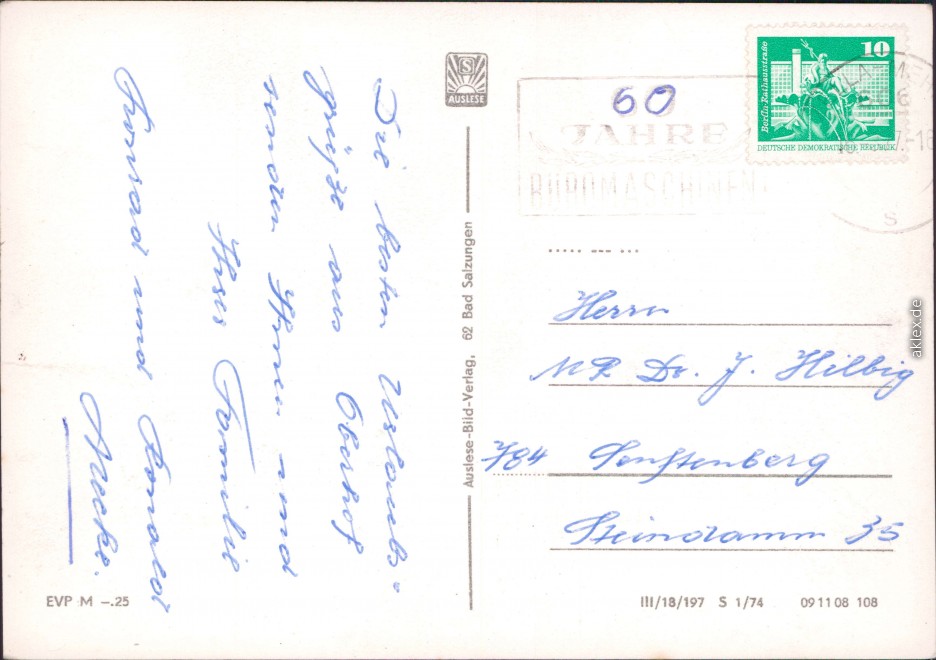 Die besten Urlaubs-
grüße aus Oberhof
senden Ihnen und
Ihrer Familie
und Ronald
S
AUSLESE
Auslese-Bild-Verlag, 62 Bad Salzungen
EVP M –.25
60
JAHRE
BÜROMASCHINEN
Berlin-Rathausstraße
10
DEUTSCHE DEMOKRATISCHE REPUBLIK
s
Herrn
MR Dr. J. Hilbig
784 Senftenberg
Steindamm 35
III/18/197 S 1/74 09 11 08 108
aklex.de